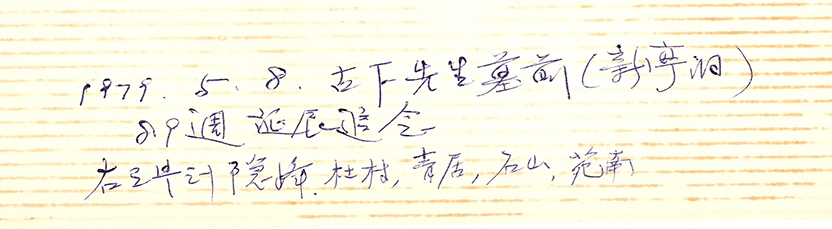 1979. 5. 8. 古下先生墓前(新亭洞)
89週 誕辰追念
右로부터 隐峰, 杜村, 青居, 石山, 苑南